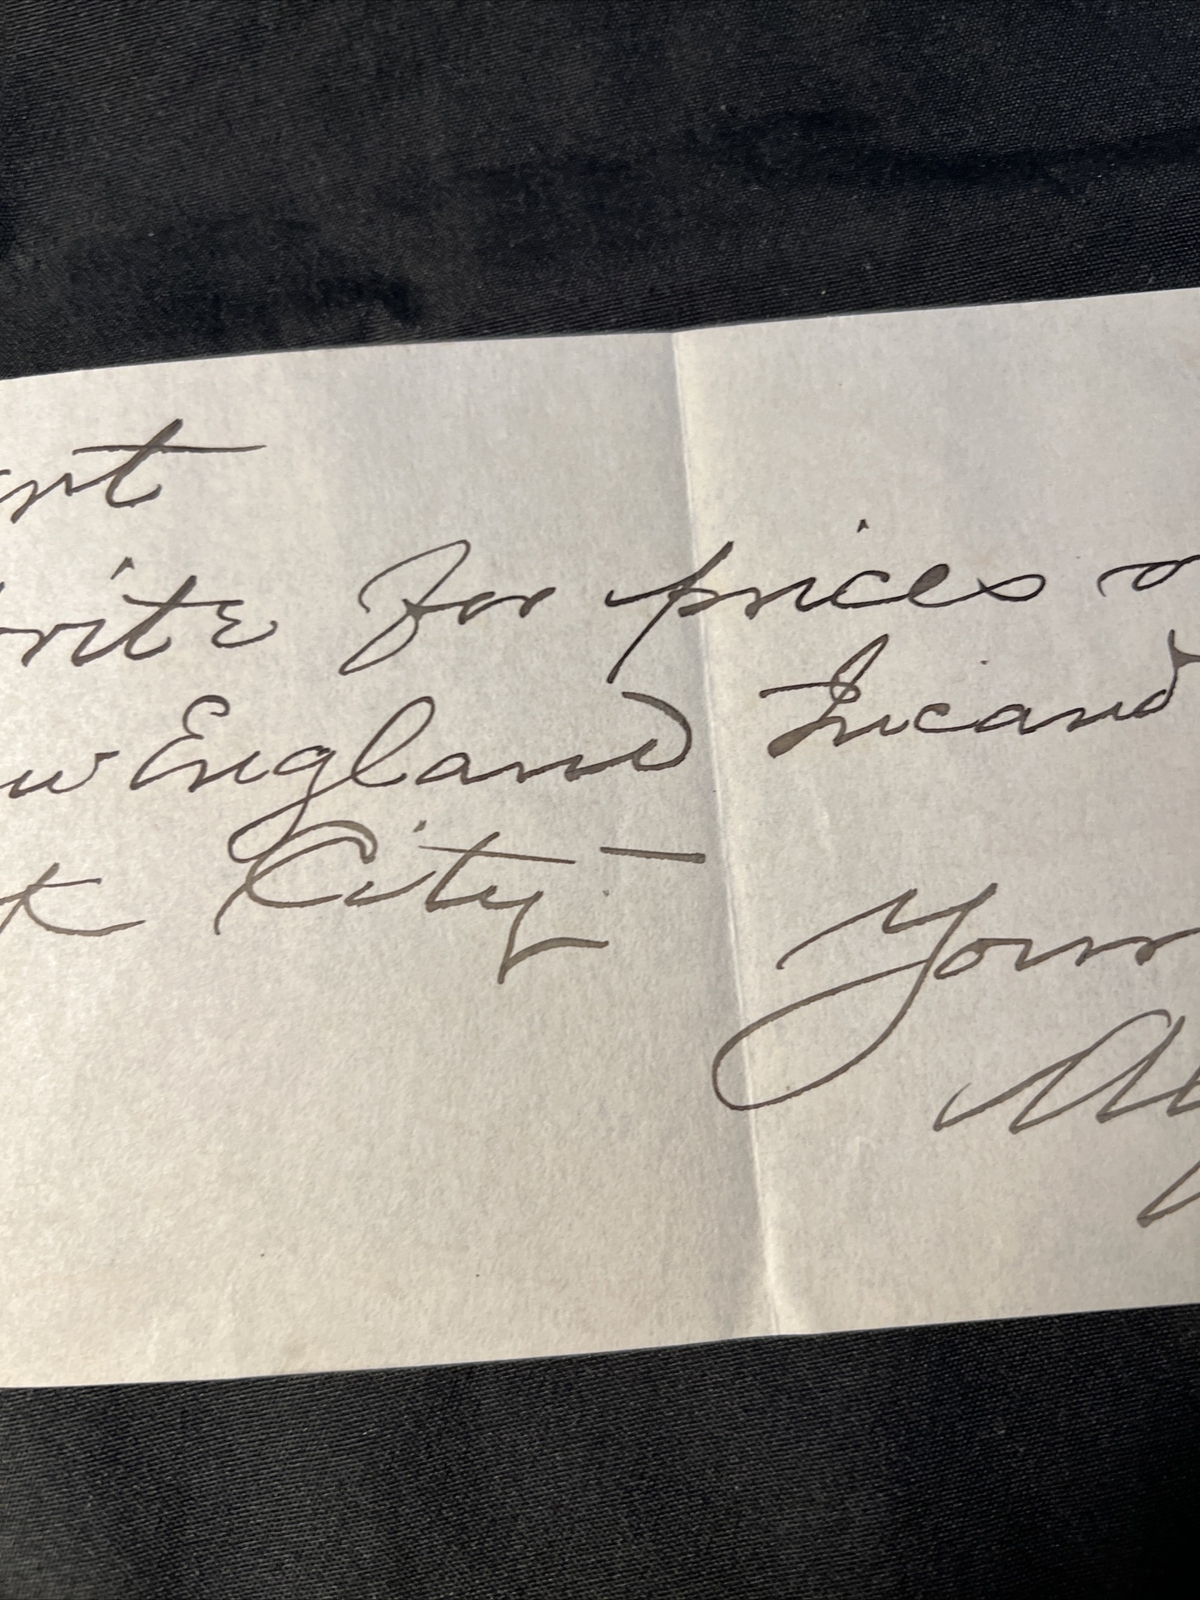 rite for prices o
w England Incand
k City. —
Yours